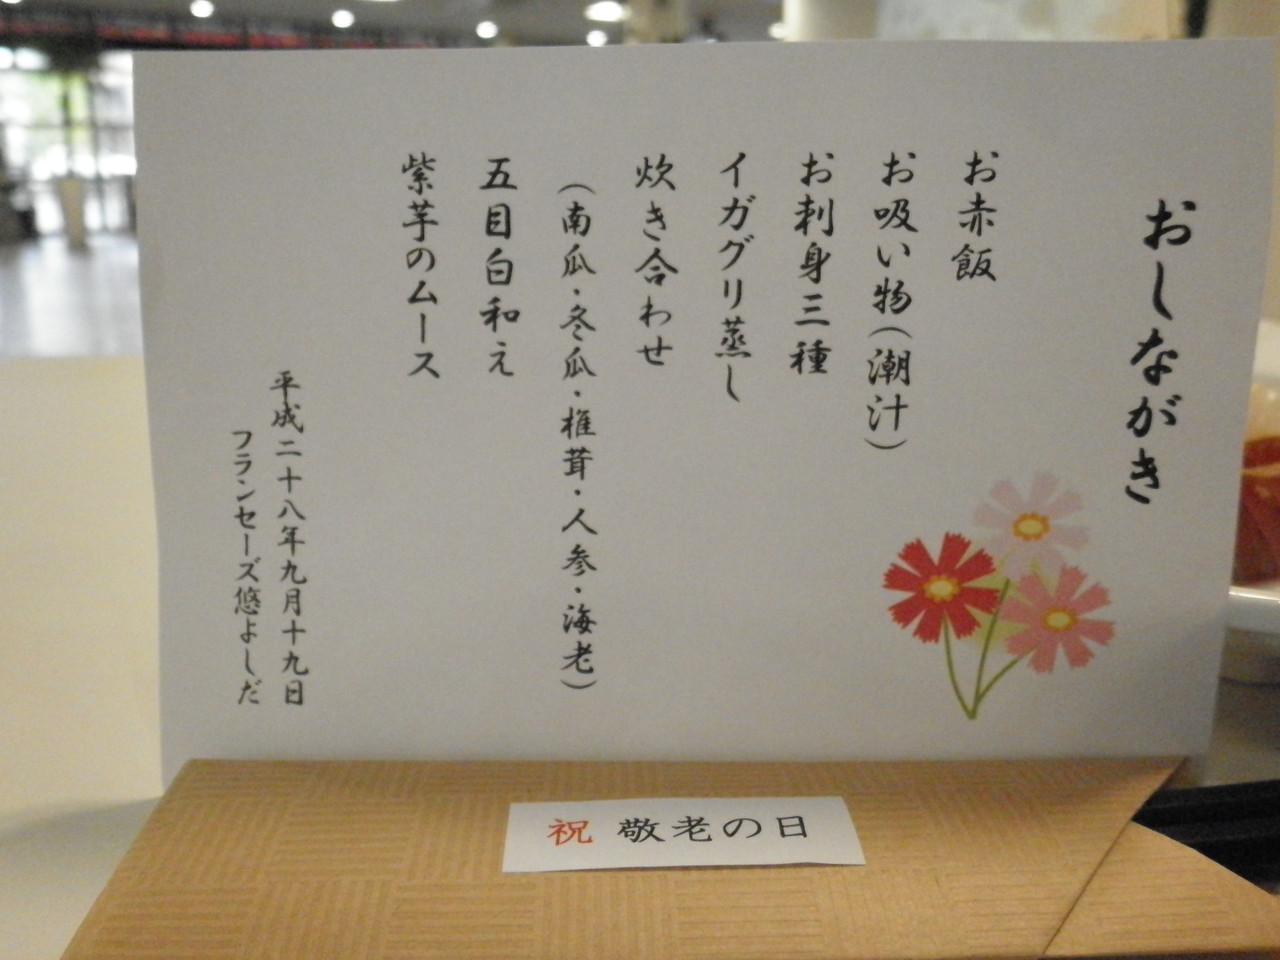 おしながき
お赤飯
お吸い物（潮汁）
お刺身三種
イガグリ蒸し
炊き合わせ
（南瓜・冬瓜・椎茸・人参・海老）
五目白和え
紫芋のムース
平成二十八年九月十九日
フランセーズ悠よしだ
祝 敬老の日